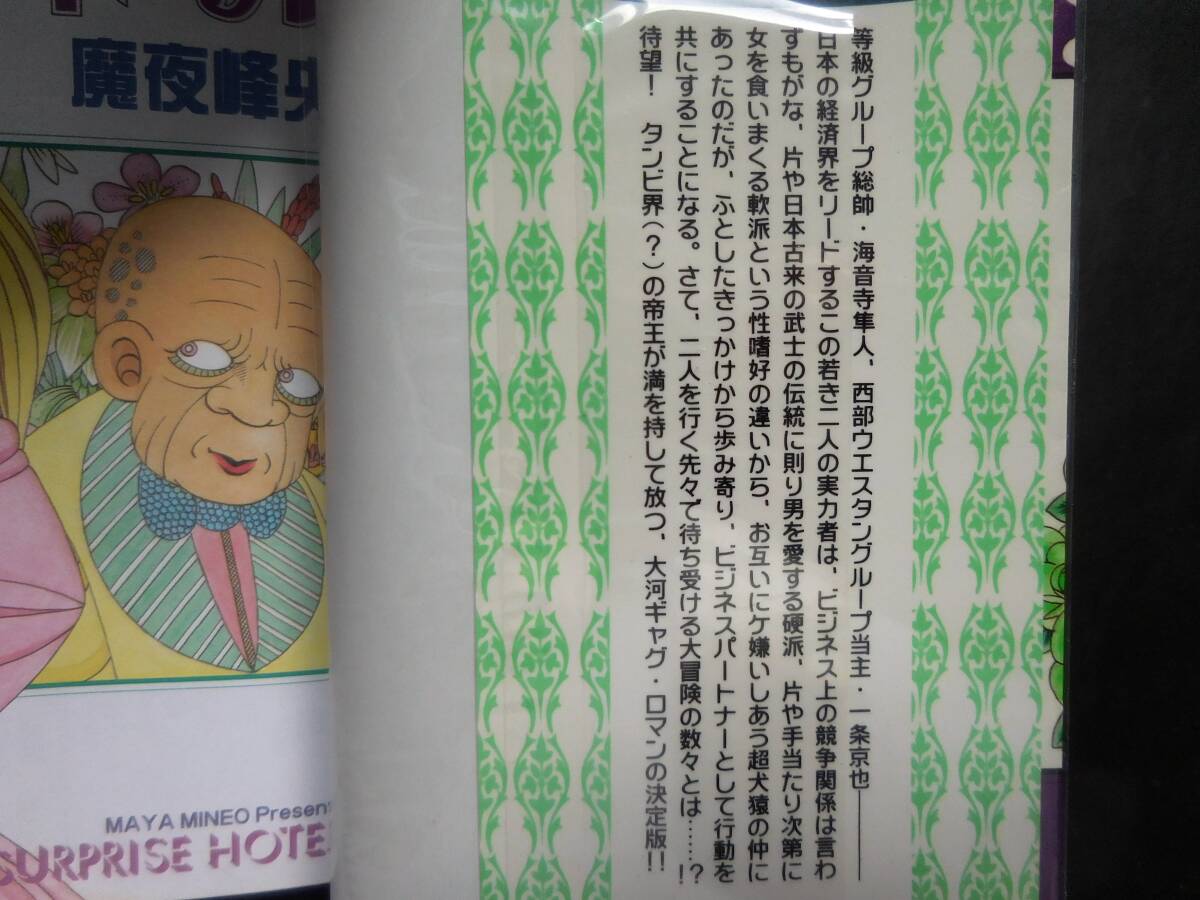 等級グループ総帥・海音寺隼人、西部ウエスタングループ当主・一条京也――
日本の経済界をリードするこの若き二人の実力者は、ビジネス上の競争関係は言わ
ずもがな、片や日本古来の武士の伝統に則り男を愛する硬派、片や手当たり次第に
女を食いまくる軟派という性嗜好の違いから、お互いにケ嫌いしあう超犬猿の仲に
あったのだが、ふとしたきっかけから歩み寄り、ビジネスパートナーとして行動を
共にすることになる。さて、二人を行く先々で待ち受ける大冒険の数々とは……?!
待望！　タンビ界(？)の帝王が満を持して放つ、大河ギャグ・ロマンの決定版!!
魔夜峰央
MAYA MINEO Present
SURPRISE HOTE